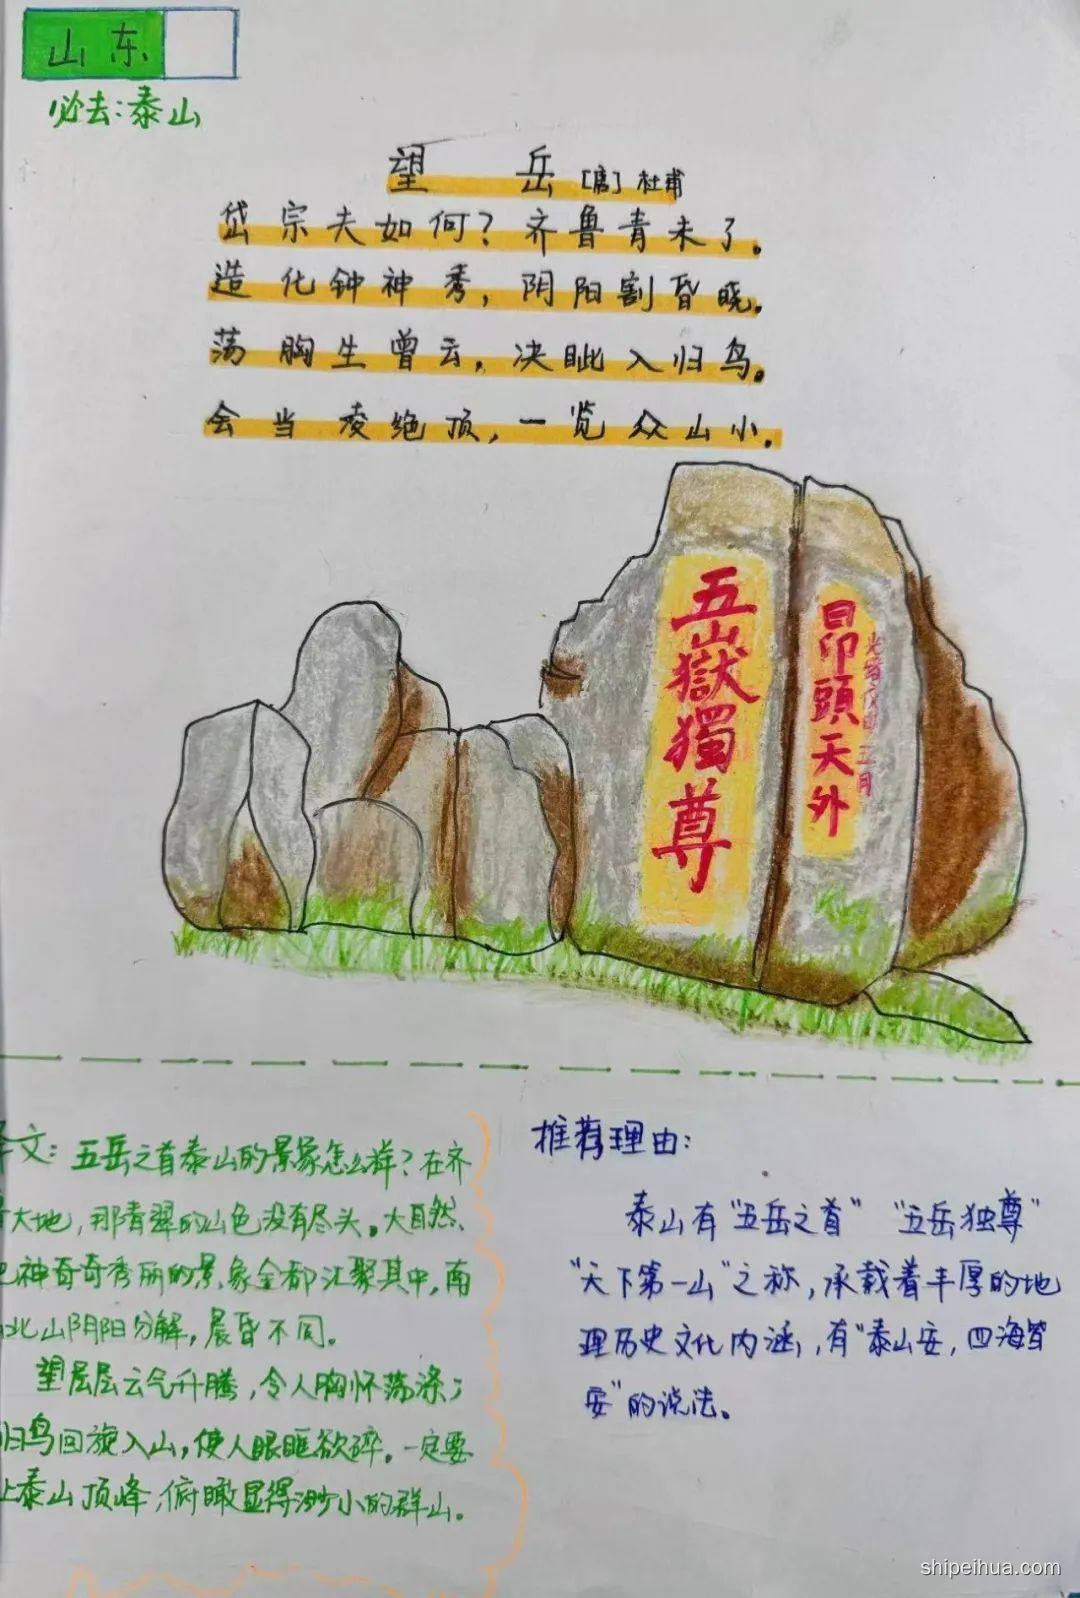 山东
必去:泰山
望岳[唐]杜甫
岱宗夫如何?齐鲁青未了。
造化钟神秀,阴阳割昏晓。
荡胸生曾云,决眦入归鸟。
会当凌绝顶,一览众山小。
五嶽獨尊
昂頭天外
文:五岳之首泰山的景象怎么样?在齐
大地,那青翠的山色没有尽头。大自然
神奇奇秀丽的景象全都汇聚其中,南
北山阴阳分解,晨昏不同。
望层层云气升腾,令人胸怀荡涤;
归鸟回旋入山,使人眼眶欲碎。一定要
上泰山顶峰,俯瞰显得渺小的群山。
推荐理由:
泰山有"五岳之首""五岳独尊"
"天下第一山"之称,承载着丰厚的地
理历史文化内涵,有"泰山安,四海皆
安"的说法。
shipeihua.com